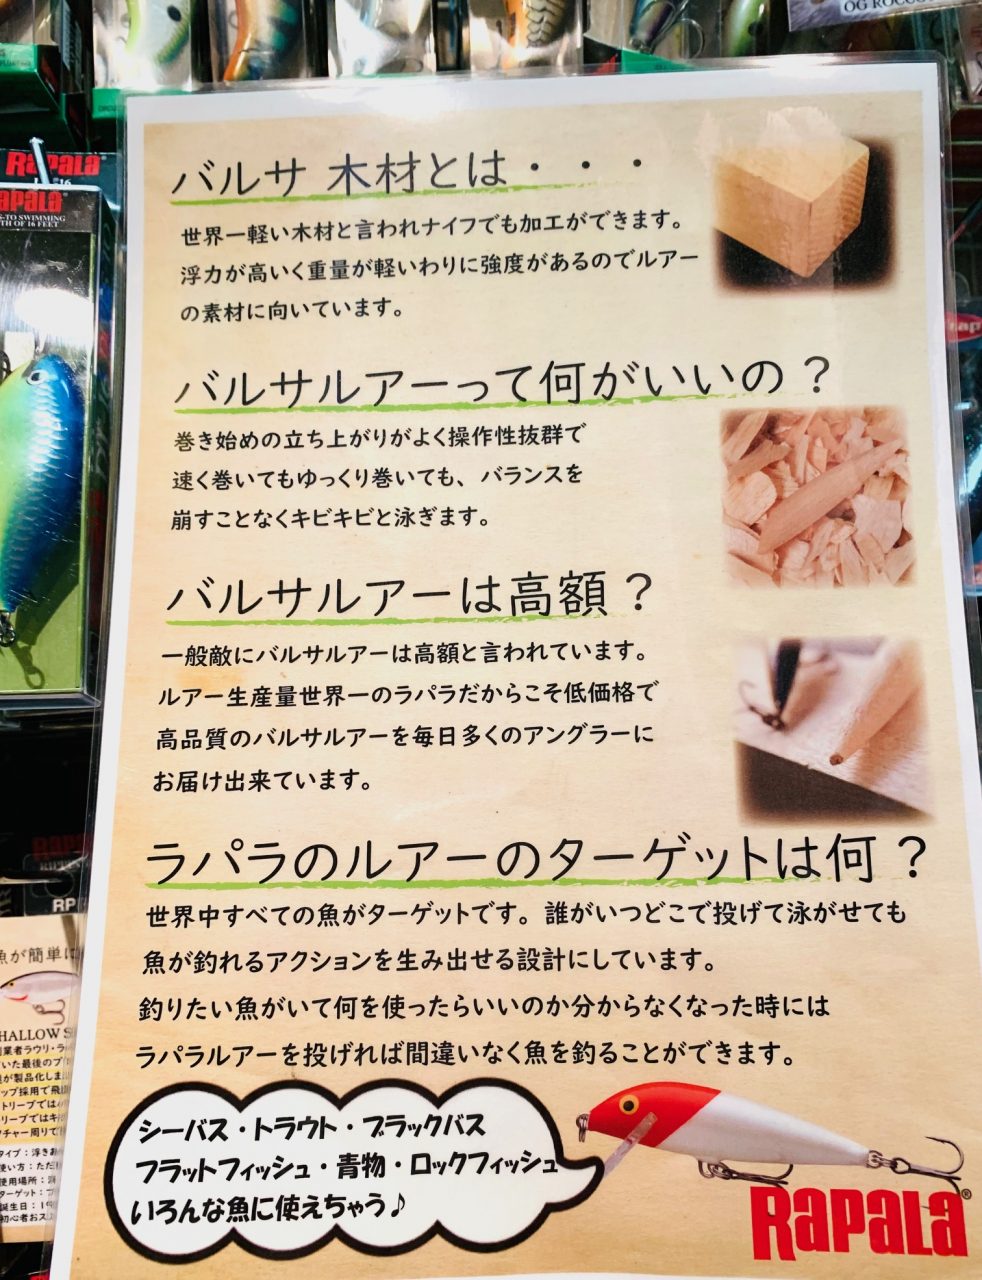 OG ROCO
RAPALA
RAPALA
S-TO SWIMMING
TH OF 16 FEET
バルサ 木材とは・・・
世界一軽い木材と言われナイフでも加工ができます。
浮力が高いく重量が軽いわりに強度があるのでルアー
の素材に向いています。
バルサルアーって何がいいの？
巻き始めの立ち上がりがよく操作性抜群で
速く巻いてもゆっくり巻いても、バランスを
崩すことなくキビキビと泳ぎます。
バルサルアーは高額？
一般敵にバルサルアーは高額と言われています。
ルアー生産量世界一のラパラだからこそ低価格で
高品質のバルサルアーを毎日多くのアングラーに
お届け出来ています。
ラパラのルアーのターゲットは何？
世界中すべての魚がターゲットです。誰がいつどこで投げて泳がせても
魚が釣れるアクションを生み出せる設計にしています。
釣りたい魚がいて何を使ったらいいのか分からなくなった時には
ラパラルアーを投げれば間違いなく魚を釣ることができます。
シーバス・トラウト・ブラックバス
フラットフィッシュ・青物・ロックフィッシュ
いろんな魚に使えちゃう♪
RAPALA®
RAPALA
RP
魚が簡単に
HALLOW S
業者ラウリ・ラ
いた最後のプ
が製品化しま
ップ採用で飛
トリーブでは
リーブではキ
チャー周りで
タイプ：浮き
使い方：ただ
使用場所：
ターゲット：
誕生日：19
初心者おス